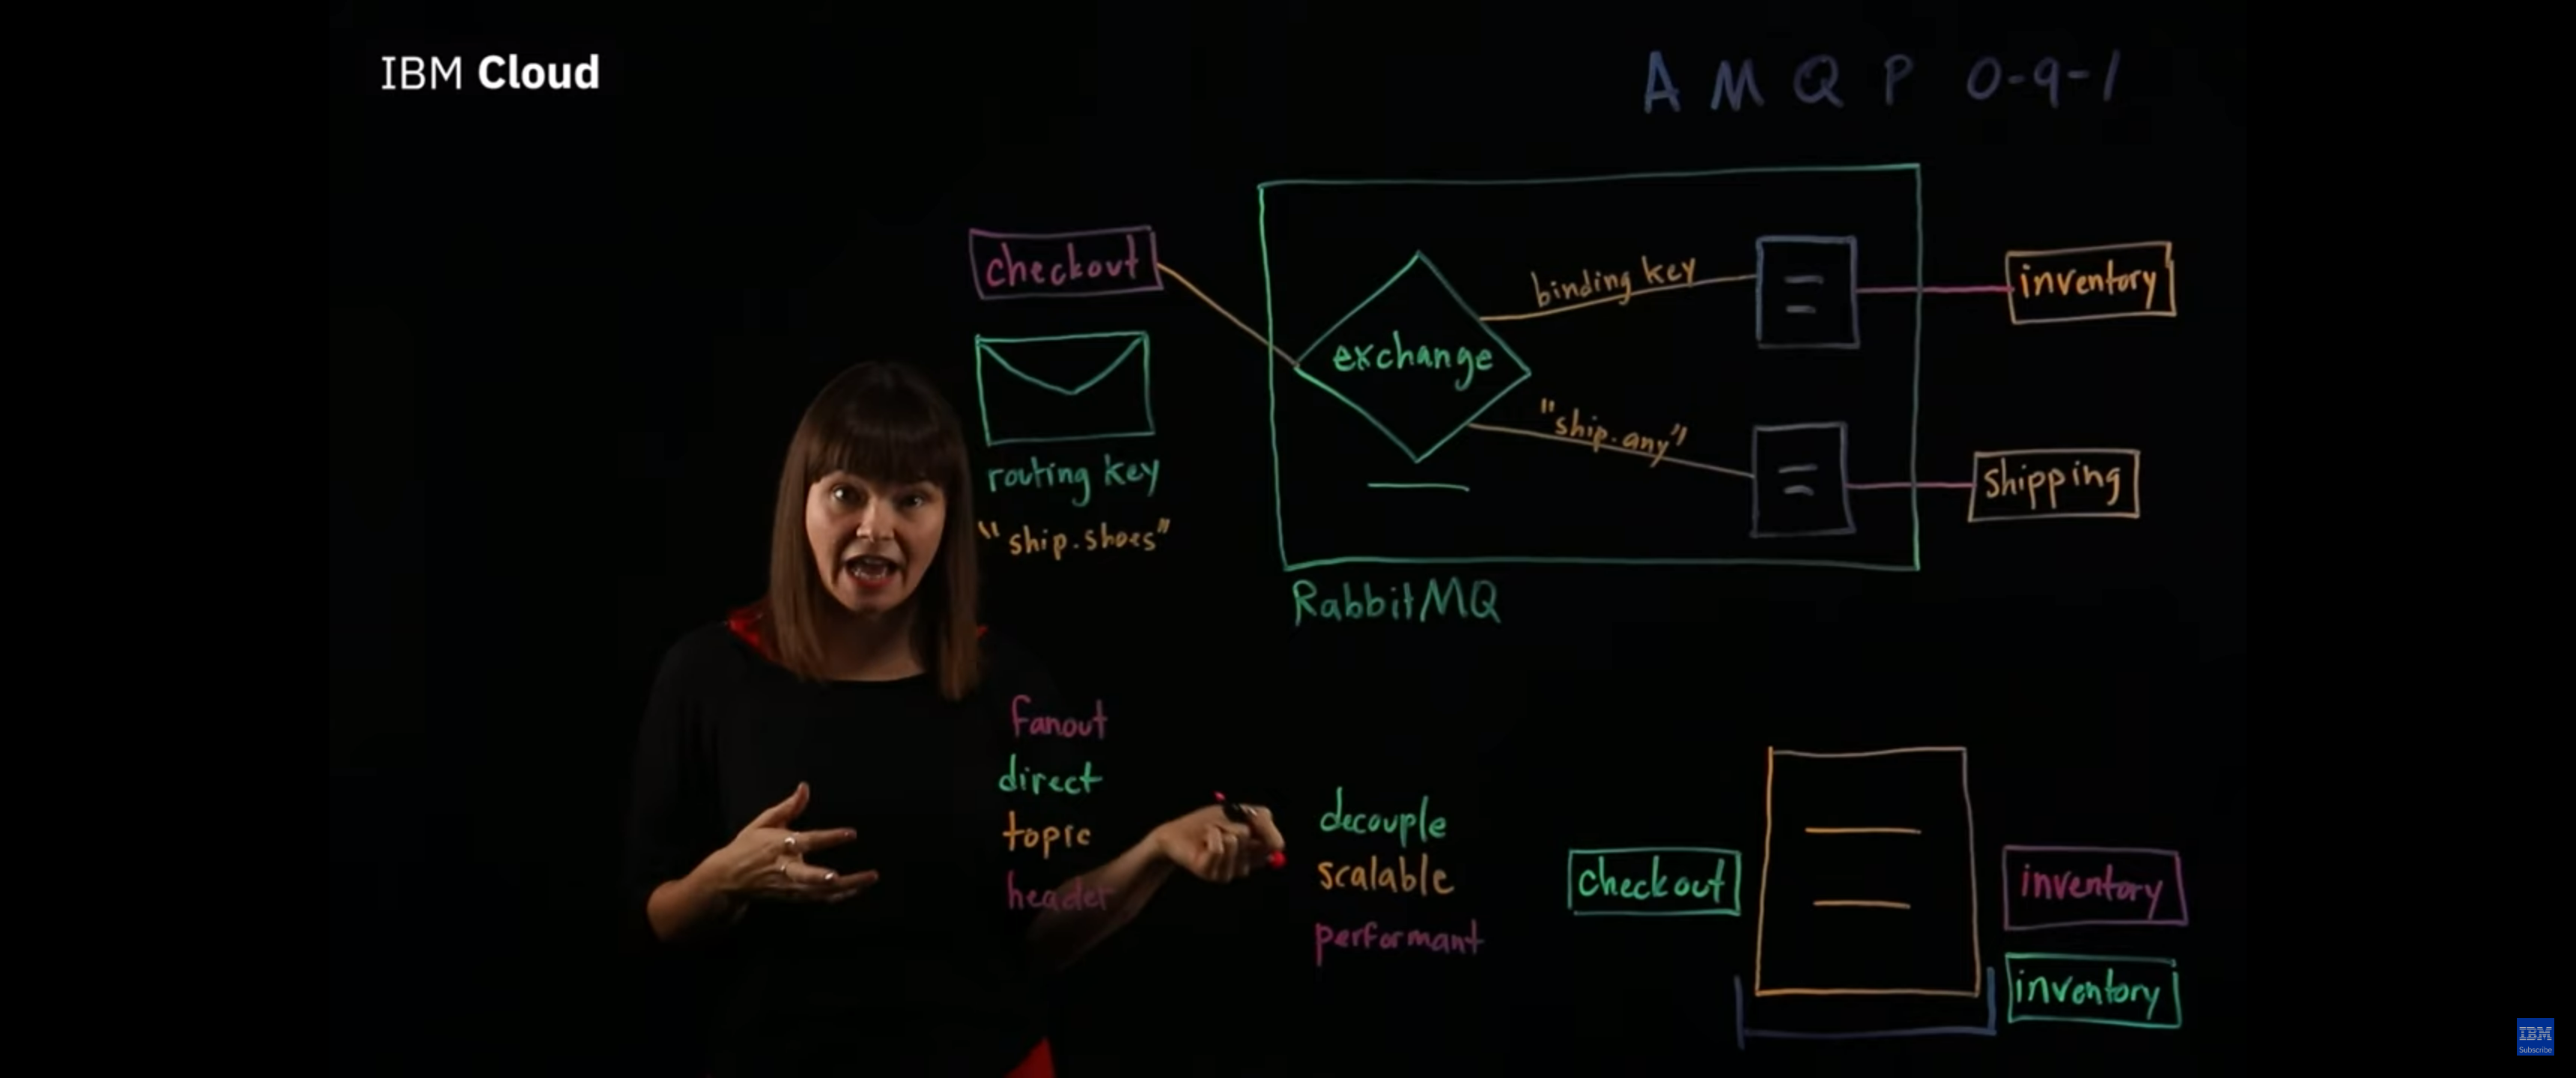 IBM Cloud
AMQP 0-9-1
checkout
routing key
"ship.shoes"
exchange
binding key
"ship.any"
inventory
shipping
RabbitMQ
fanout
direct
topic
header
decouple
scalable
performant
checkout
inventory
inventory
IBM
Subscribe